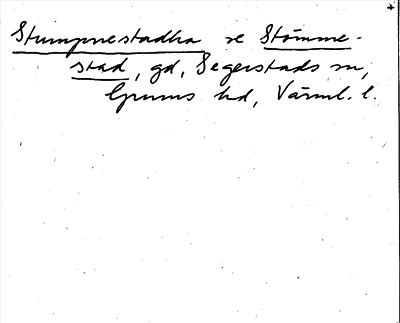 Stumpnestadha se Stömme-
stad, gd, Segerstads sn,
Grums hd, Värml. l.